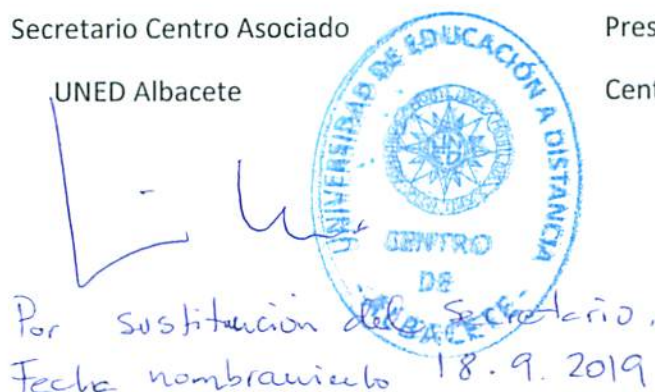 Secretario Centro Asociado
Pres
UNED Albacete
Cent
UNIVERSIDAD DE EDUCACIÓN A DISTANCIA
UNED
CENTRO
DE
ALBACETE
Por sustitución del Secretario.
Fecha nombramiento 18.9.2019